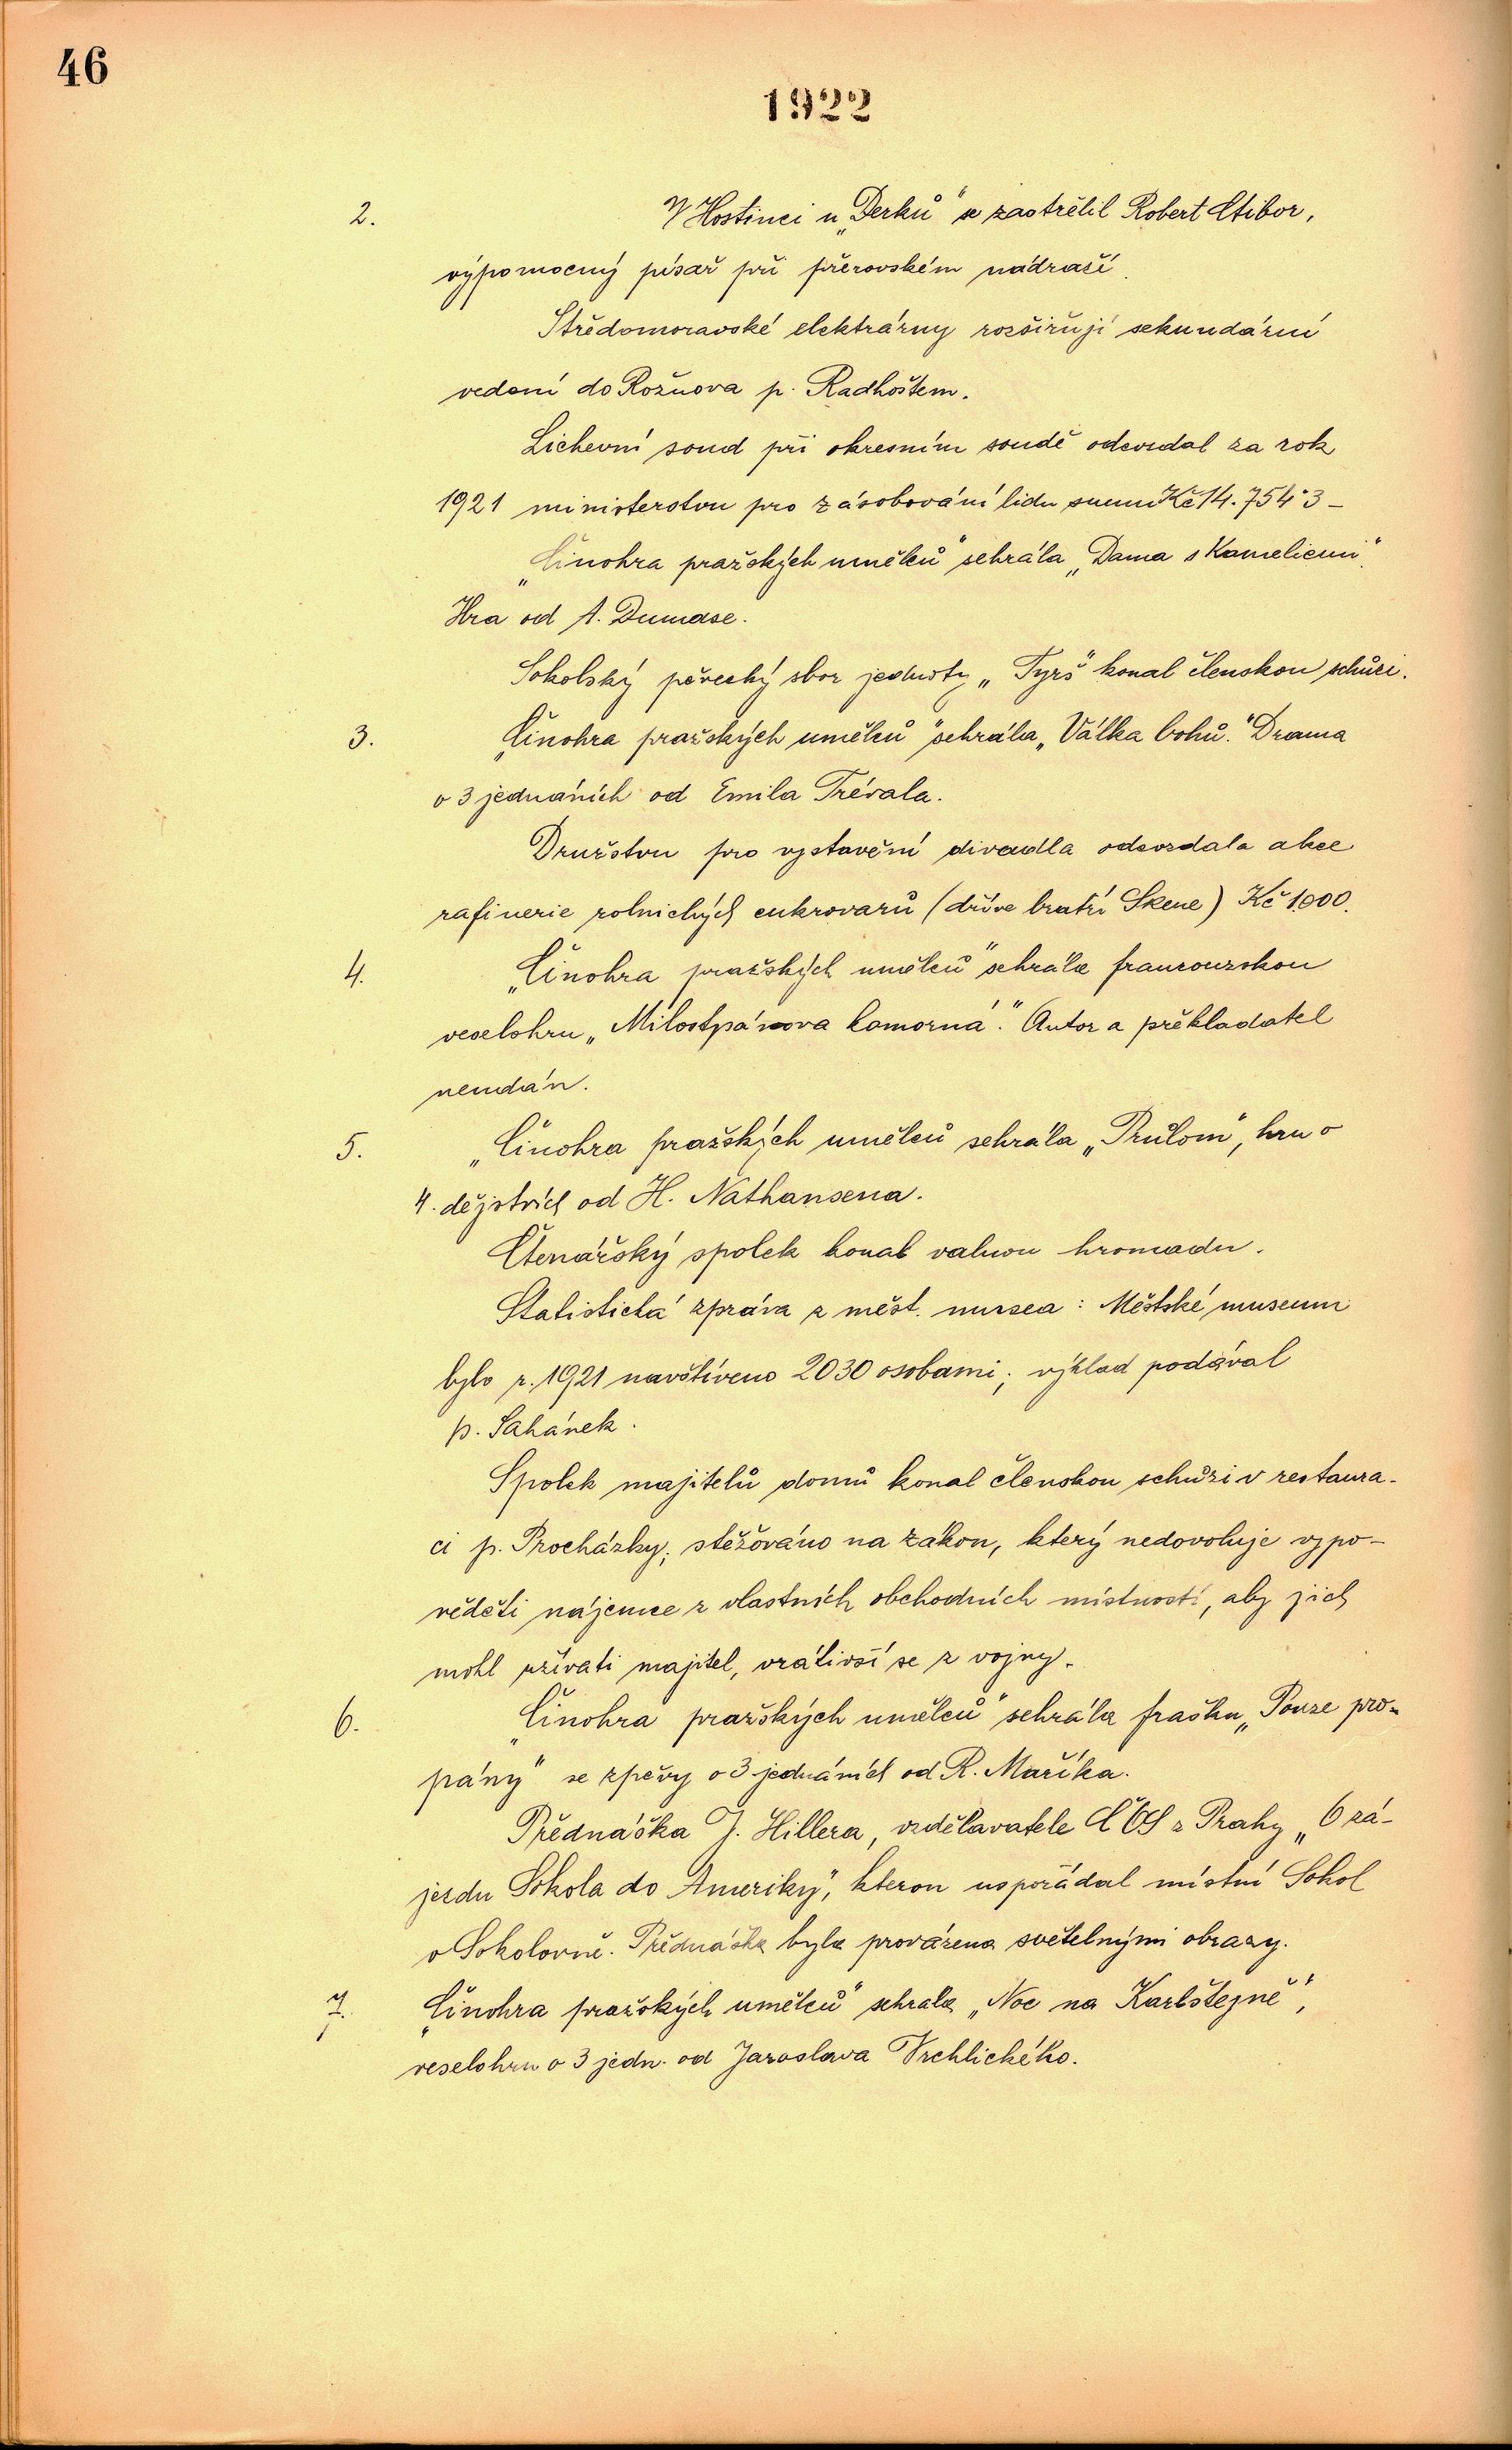 46
1922
2. V Hostinci u „Derků" se zastřelil Robert Ctibor,
výpomocný písař při přerovském nádraží.
Středomoravské elektrárny rozšiřují sekundární
vedení do Rožnova p. Radhoštem.
Lichevní soud při okresním soudě odevzdal za rok
1921 ministerstvu pro zásobování lidu sumu Kč 14.754·3-
„Činohra pražských umělců" sehrála „Dama s Kameliemi".
Hra od A. Dumase.
Sokolský pěvecký sbor jednoty „Tyrš" konal členskou schůzi.
3. „Činohra pražských umělců" sehrála „Válka bohů." Drama
o 3 jednáních od Emila Trévala.
Družstvu pro vystavění divadla odevzdala akce
rafinerie rolnických cukrovarů (dříve bratří Skene) Kč 1.000.
4. „Činohra pražských umělců" sehrála francouzskou
veselohru „Milostpánova komorná." Autor a překladatel
neudán.
5. „Činohra pražských umělců sehrála „Průlom", hru o
4. dějstvích od H. Nathansena.
Čtenářský spolek konal valnou hromadu.
Statistická zpráva z měst. musea: Městské museum
bylo r. 1921 navštíveno 2030 osobami; výklad podával
p. Sahánek.
Spolek majitelů domů konal členskou schůzi v restaura-
ci p. Procházky; stěžováno na zákon, který nedovoluje vypo-
věděti nájemce z vlastních obchodních místností, aby jich
mohl užívati majitel, vrátivší se z vojny.
6. „Činohra pražských umělců" sehrála frašku „Pouze pro-
pány" se zpěvy o 3 jednáních od R. Maříka.
Přednáška J. Hillera, vzdělavatele ČOS z Prahy „O zá-
jezdu Sokola do Ameriky", kterou uspořádal místní Sokol
v Sokolovně. Přednáška byla provázena světelnými obrazy.
7. „Činohra pražských umělců" sehrála „Noc na Karlštejně",
veselohru o 3 jedn. od Jaroslava Vrchlického.